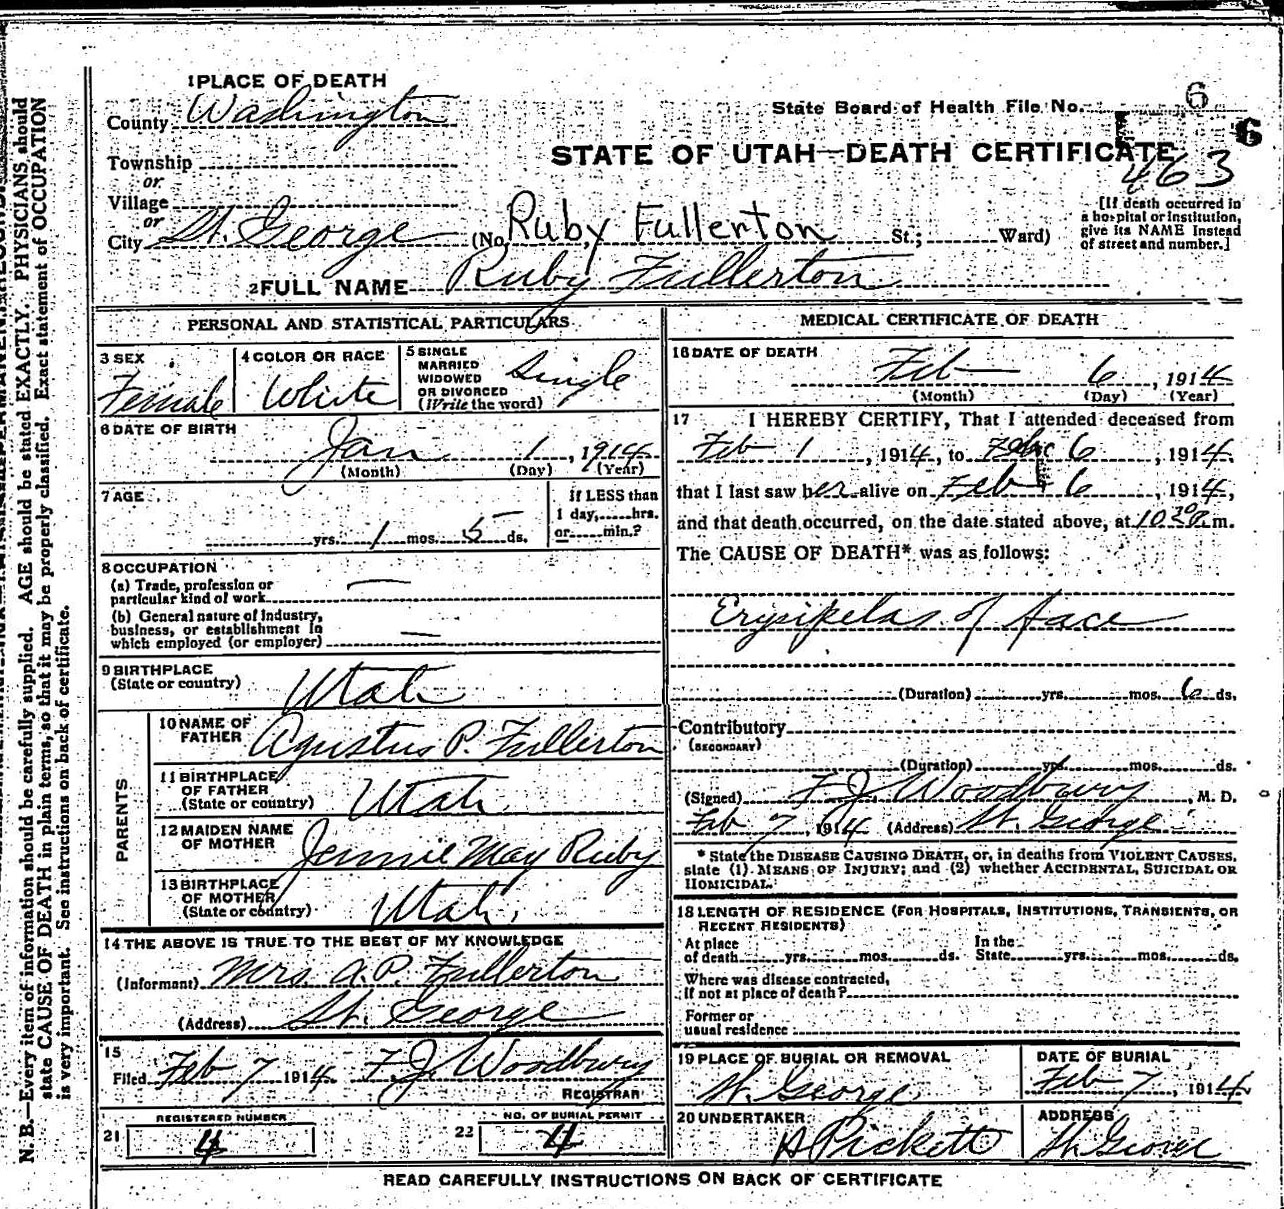 1 PLACE OF DEATH
County Washington
State Board of Health File No. 6
6
Township
or
Village
or
City St. George
STATE OF UTAH—DEATH CERTIFICATE
463
(No. Ruby Fullerton St.; Ward)
[If death occurred in
a hospital or institution,
give its NAME instead
of street and number.]
2 FULL NAME Ruby Fullerton
PERSONAL AND STATISTICAL PARTICULARS
3 SEX
Female
4 COLOR OR RACE
White
5 SINGLE
MARRIED
WIDOWED
OR DIVORCED
(Write the word)
Single
6 DATE OF BIRTH
Jan 1, 1914
(Month) (Day) (Year)
7 AGE
yrs. 1 mos. 5 ds.
If LESS than
1 day, hrs.
or min.?
8 OCCUPATION
(a) Trade, profession or
particular kind of work —
(b) General nature of industry,
business, or establishment in
which employed (or employer) —
9 BIRTHPLACE
(State or country) Utah
PARENTS
10 NAME OF
FATHER Agustus P. Fullerton
11 BIRTHPLACE
OF FATHER
(State or country) Utah
12 MAIDEN NAME
OF MOTHER Jennie May Ruby
13 BIRTHPLACE
OF MOTHER
(State or country) Utah.
14 THE ABOVE IS TRUE TO THE BEST OF MY KNOWLEDGE
(Informant) Mrs. A. P. Fullerton
(Address) St. George
15
Filed Feb 7 1914 F. J. Woodbury
REGISTRAR
REGISTERED NUMBER
21 4
NO. OF BURIAL PERMIT
22 4
MEDICAL CERTIFICATE OF DEATH
16 DATE OF DEATH
Feb 6, 1914
(Month) (Day) (Year)
17 I HEREBY CERTIFY, That I attended deceased from
Feb 1, 1914, to Feb 6, 1914,
that I last saw her alive on Feb 6, 1914,
and that death occurred, on the date stated above, at 10 30 P. m.
The CAUSE OF DEATH* was as follows:
Erysipelas of face
(Duration) yrs. mos. 6 ds.
Contributory
(SECONDARY)
(Duration) yrs. mos. ds.
(Signed) F. J. Woodbury, M. D.
Feb 7, 1914 (Address) St. George
* State the DISEASE CAUSING DEATH, or, in deaths from VIOLENT CAUSES,
state (1) MEANS OF INJURY; and (2) whether ACCIDENTAL, SUICIDAL OR
HOMICIDAL.
18 LENGTH OF RESIDENCE (FOR HOSPITALS, INSTITUTIONS, TRANSIENTS, OR
RECENT RESIDENTS)
At place
of death yrs. mos. ds.
In the
State yrs. mos. ds.
Where was disease contracted,
if not at place of death?
Former or
usual residence
19 PLACE OF BURIAL OR REMOVAL
St. George
DATE OF BURIAL
Feb 7, 1914
20 UNDERTAKER
Pickett
ADDRESS
St. George
READ CAREFULLY INSTRUCTIONS ON BACK OF CERTIFICATE
N. B.—Every item of information should be carefully supplied. AGE should be stated EXACTLY. PHYSICIANS should
state CAUSE OF DEATH in plain terms, so that it may be properly classified. Exact statement of OCCUPATION
is very important. See instructions on back of certificate.